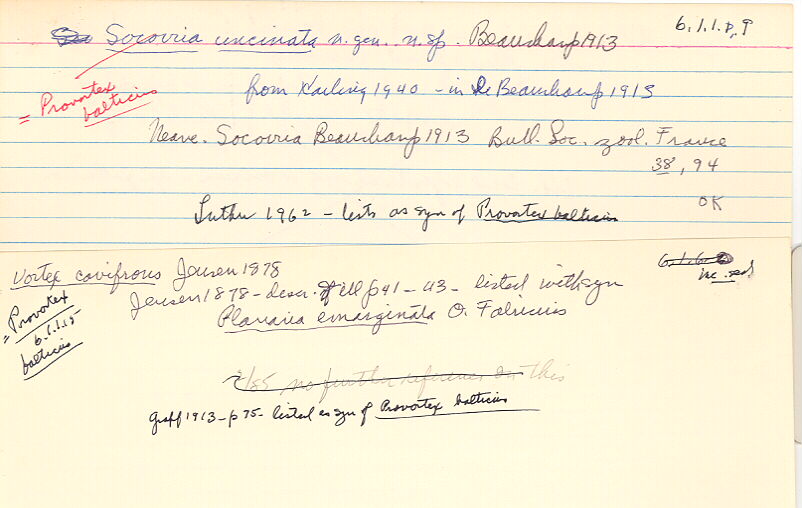 Socorria uncinata n. gen. n. sp. Beauchamp 1913
6.1.1.p.9
= Provortex balticus
from Karling 1940 - in de Beauchamp 1913
Neave. Socorria Beauchamp 1913 Bull. Soc. zool. France
38, 94
OK
Luther 1962 - lists as syn of Provortex balticus
Vortex cavifrons Jensen 1878
inc. sed.
Jensen 1878 - descr. & ill p 41 - 43 - listed with syn
= Provortex
6.1.1.15
balticus
Planaria emarginata O. Fabricius
2/85 no further reference on this
Graff 1913 - p 75 - listed as syn of Provortex balticus